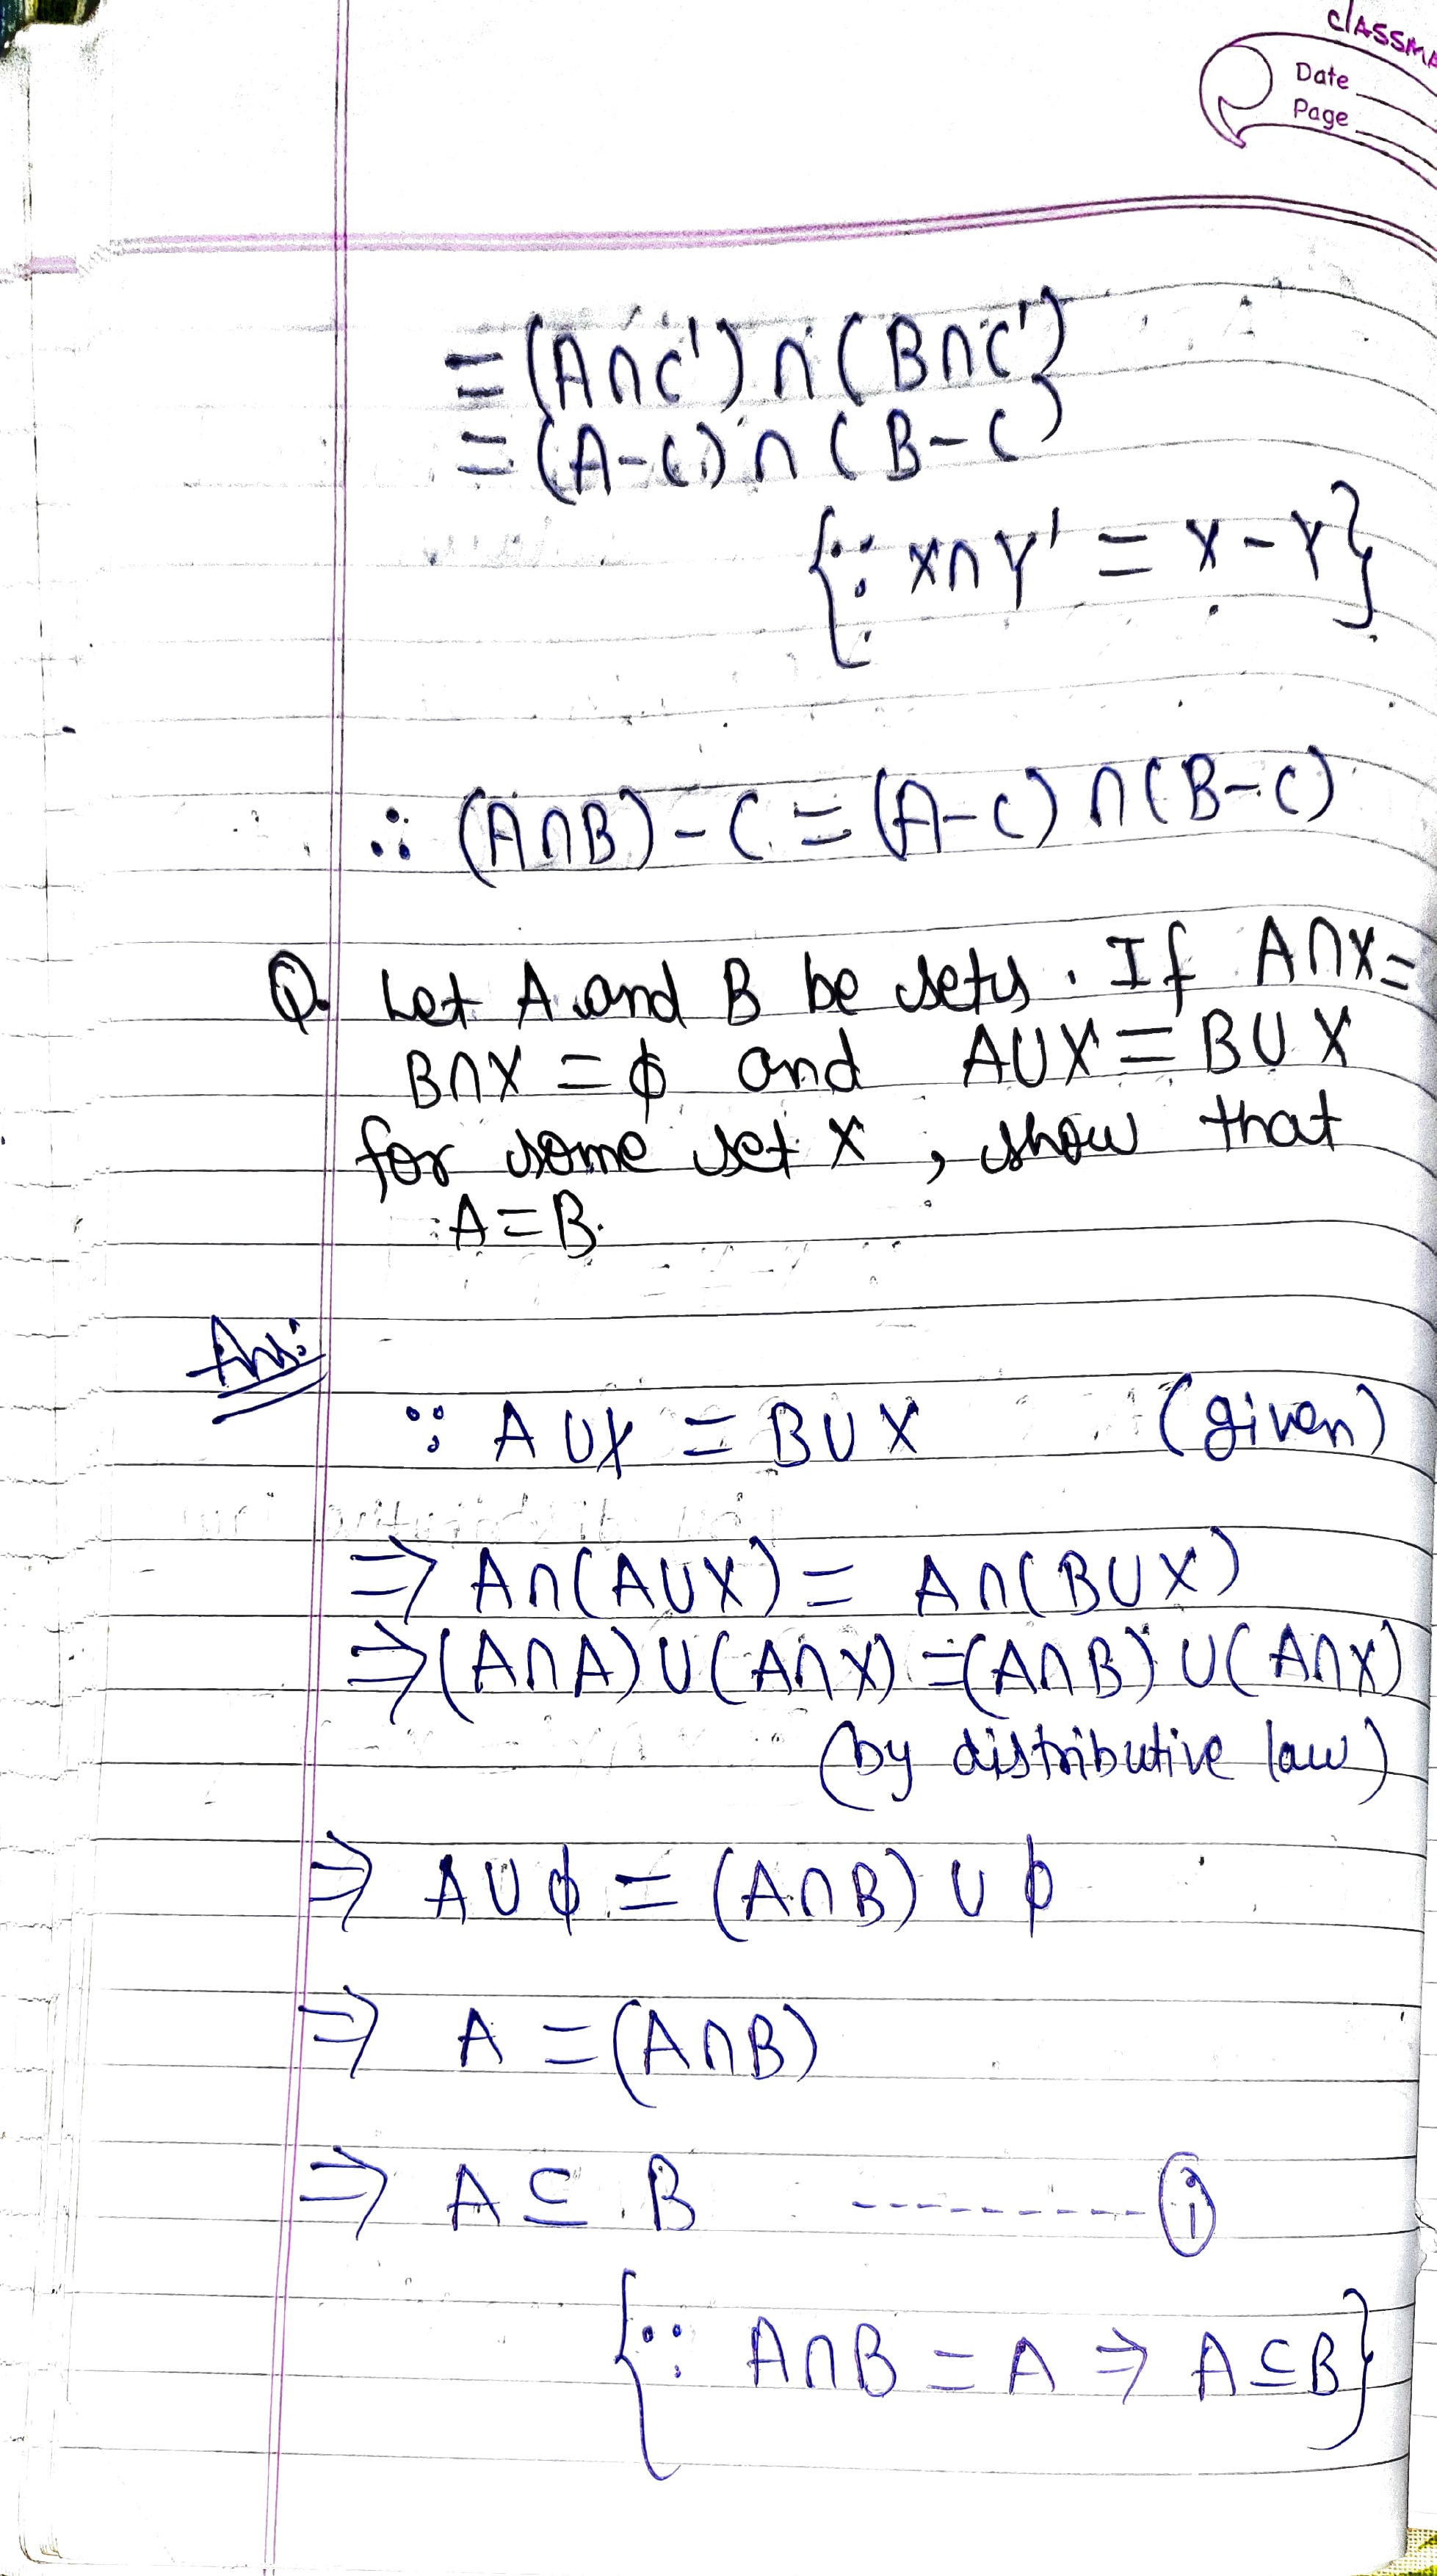 classma
Date
Page
= (A∩C') ∩ (B∩C')
= (A-C) ∩ (B-C)
{∵ X∩Y' = X-Y}
∴ (A∩B)-C = (A-C) ∩ (B-C)
Q. Let A and B be sets. If A∩X=
B∩X = ϕ and A∪X = B∪X
for some set X, show that
A=B.
Ans:
∵ A∪X = B∪X (given)
⇒ A∩(A∪X) = A∩(B∪X)
⇒ (A∩A)∪(A∩X) = (A∩B)∪(A∩X)
(by distributive law)
⇒ A∪ϕ = (A∩B)∪ϕ
⇒ A = (A∩B)
⇒ A ⊆ B ---------- (i)
{∵ A∩B = A ⇒ A⊆B}